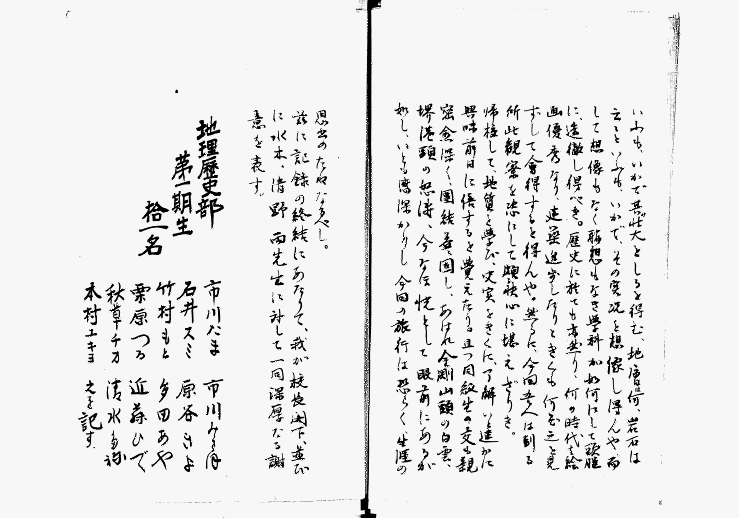 いふも、いかで其壮大としるを得む、地層何、岩石は
云々といふも、いかで、その実况を想像し得んや、而
して想像もなく聯想もなき学科が如何にして頭脳
に透徹し得べき。歴史に於ても亦然り、何の時代は絵
画優秀なり、建築進歩したりときくも何
ずして会得するを得んや。然るに、今回吾人は到る
所此観察を恣にして頗快心に堪えざりき。
帰校して、地質を学び、史実をきくに、了解い と速かに
興味前日に倍するを覚えたり。且つ同級生の交も親
密愈深く、団結益固し、あはれ金剛山頭の白雲、
堺港頭の怒涛、今なほ恍として眼前にあるが
如し、いとも感深かりし今回の旅行は恐らく、生涯の
思出のたねなるべし。
茲に記録の終結にあたりて、我が校長閣下並び
に水木、清野両先生に対して一同深厚なる謝
意を表す。
地理歴史部
第一期生
拾一名
市川たま 市川みさほ
石井スミ 原谷きよ
竹村もと 多田あや
栗原つる 近藤ひで
秋草チカ 清水
本村ユキヨ 之を記す